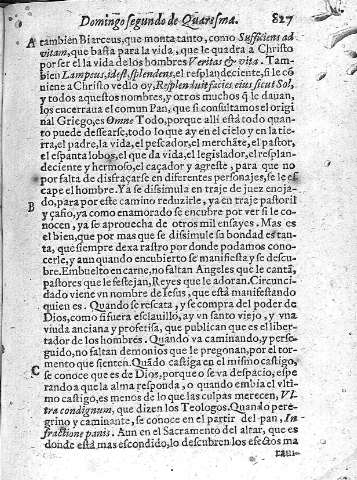 Domingo segundo de Quaresma. 827
A tambien Biarceus, que monta tanto, como Sufficiens ad
vitam, que basta para la vida, que le quadra a Christo
por ser el la vida de los hombres Veritas & vita. Tam-
bien Lampeus, id est, splendens, el resplandeciente, q̃ le cõ
uiene a Christo vedlo oy, Resplenduit facies eius sicut Sol,
y todos aquestos nombres, y otros muchos q̃ le dauan,
los encerraua el comun Pan, que si consultamos el origi
nal Griego, es Omne Todo, porque alli està todo quan-
to puede dessearse, todo lo que ay en el cielo y en la tie-
rra, el padre, la vida, el pescador, el merchãte, el pastor,
el espanta lobos, el que da vida, el legislador, el resplan-
deciente y hermoso, el caçador y agreste, para que no
por falta de disfraçarse en diferentes personajes, se le es
cape el hombre. Ya se dissimula en traje de juez enoja-
B do, para por este camino reduzirle, ya en traje pastoril
y casto, ya como enamorado se encubre por ver si le co-
nocen, ya se aprouecha de otros mil ensayes. Mas es
el bien, que por mas que se dissimule su bondad es tan-
ta, que siempre dexa rastro por donde podamos cono-
cerle, y aun quando encubierto se manifiesta y se descu-
bre. Embuelto en carne, no faltan Angeles que le cantã,
pastores que le festejan, Reyes que le adoran. Circunci-
dado viene vn nombre de Iesus, que està manifestando
quien es. Quando se rescata, y se compra del poder de
Dios, como si fuera esclauillo, ay vn santo viejo, y vna
viuda anciana y profetisa, que publican que es el liber-
tador de los hombres. Quando va caminando, y perse-
guido, no faltan demonios que le pregonan, por el tor-
mento que sienten. Quãdo castiga en el mismo castigo,
C se conoce que es de Dios, porque o se va despacio, espe
rando a que la alma responda, o quando embia el vlti-
mo castigo, es menos de lo que las culpas merecen, Vl
tra condignum, que dizen los Teologos. Quando pere-
grino y caminante, se conoce en el partir del pan, In
fractione panis. Aun en el Sacramento del altar, que es
donde està mas escondido, lo descubren los efectos ma